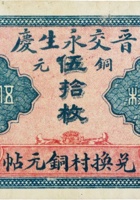 晉交永生慶
銅元
伍拾枚
兌換村銅元帖